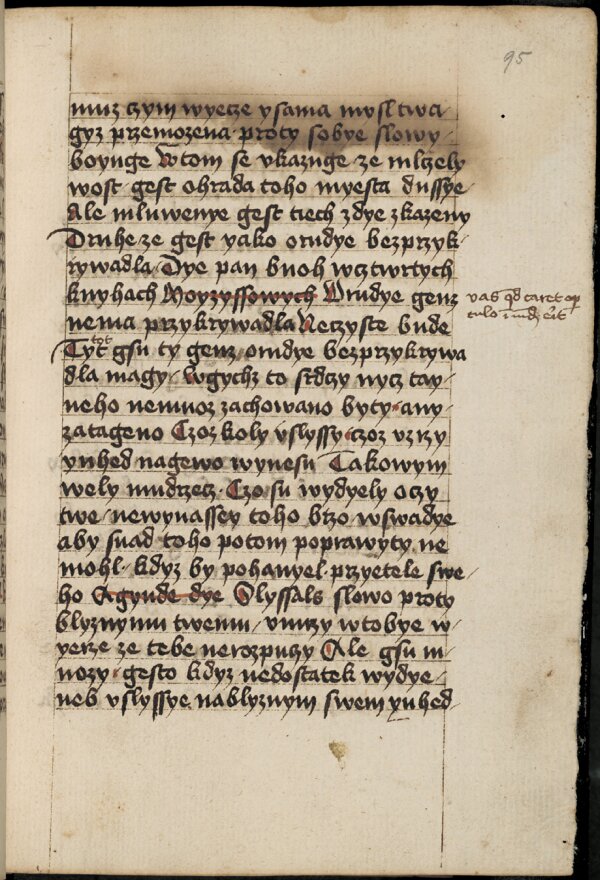 95
muz czym wyecze y sama mysl twa
gyz przemozena proty sobye slowy
boyuge W tom se vkazuge ze mlzely
wost gest ohrada toho myesta dussye
Ale mluwenye gest tiech zdye zkazeny
Druhe ze gest yako orudye bez przyk
rywadla Dye pan buoh w cztwrtych
knyhach Moyzyssowych Orudye genz
nema przykrywadla Neczyste bude
Tyt gsu ty genz orudye bez przykrywa
dla magy W gychz to srdczy nycz tay
neho nemuoz zachowano byty any
zatageno Czozkoly vslyssy czoz vzrzy
ynhed na gewo wynesu Takowym
wely mudrzecz Czo su wydyely oczy
twe newynassey toho brzo w swadye
aby snad toho potom poprawyty ne
mohl kdyz by pohanyel przyetele swe
ho A gynde dye Slyssals slowo proty
blyznymu twemu vmrzy w tobye w
yerze ze tebe nerozpuczy Ale gsu m
nozy gesto kdyz nedostatek wydye
neb vslyssye na blyznym swem ynhed